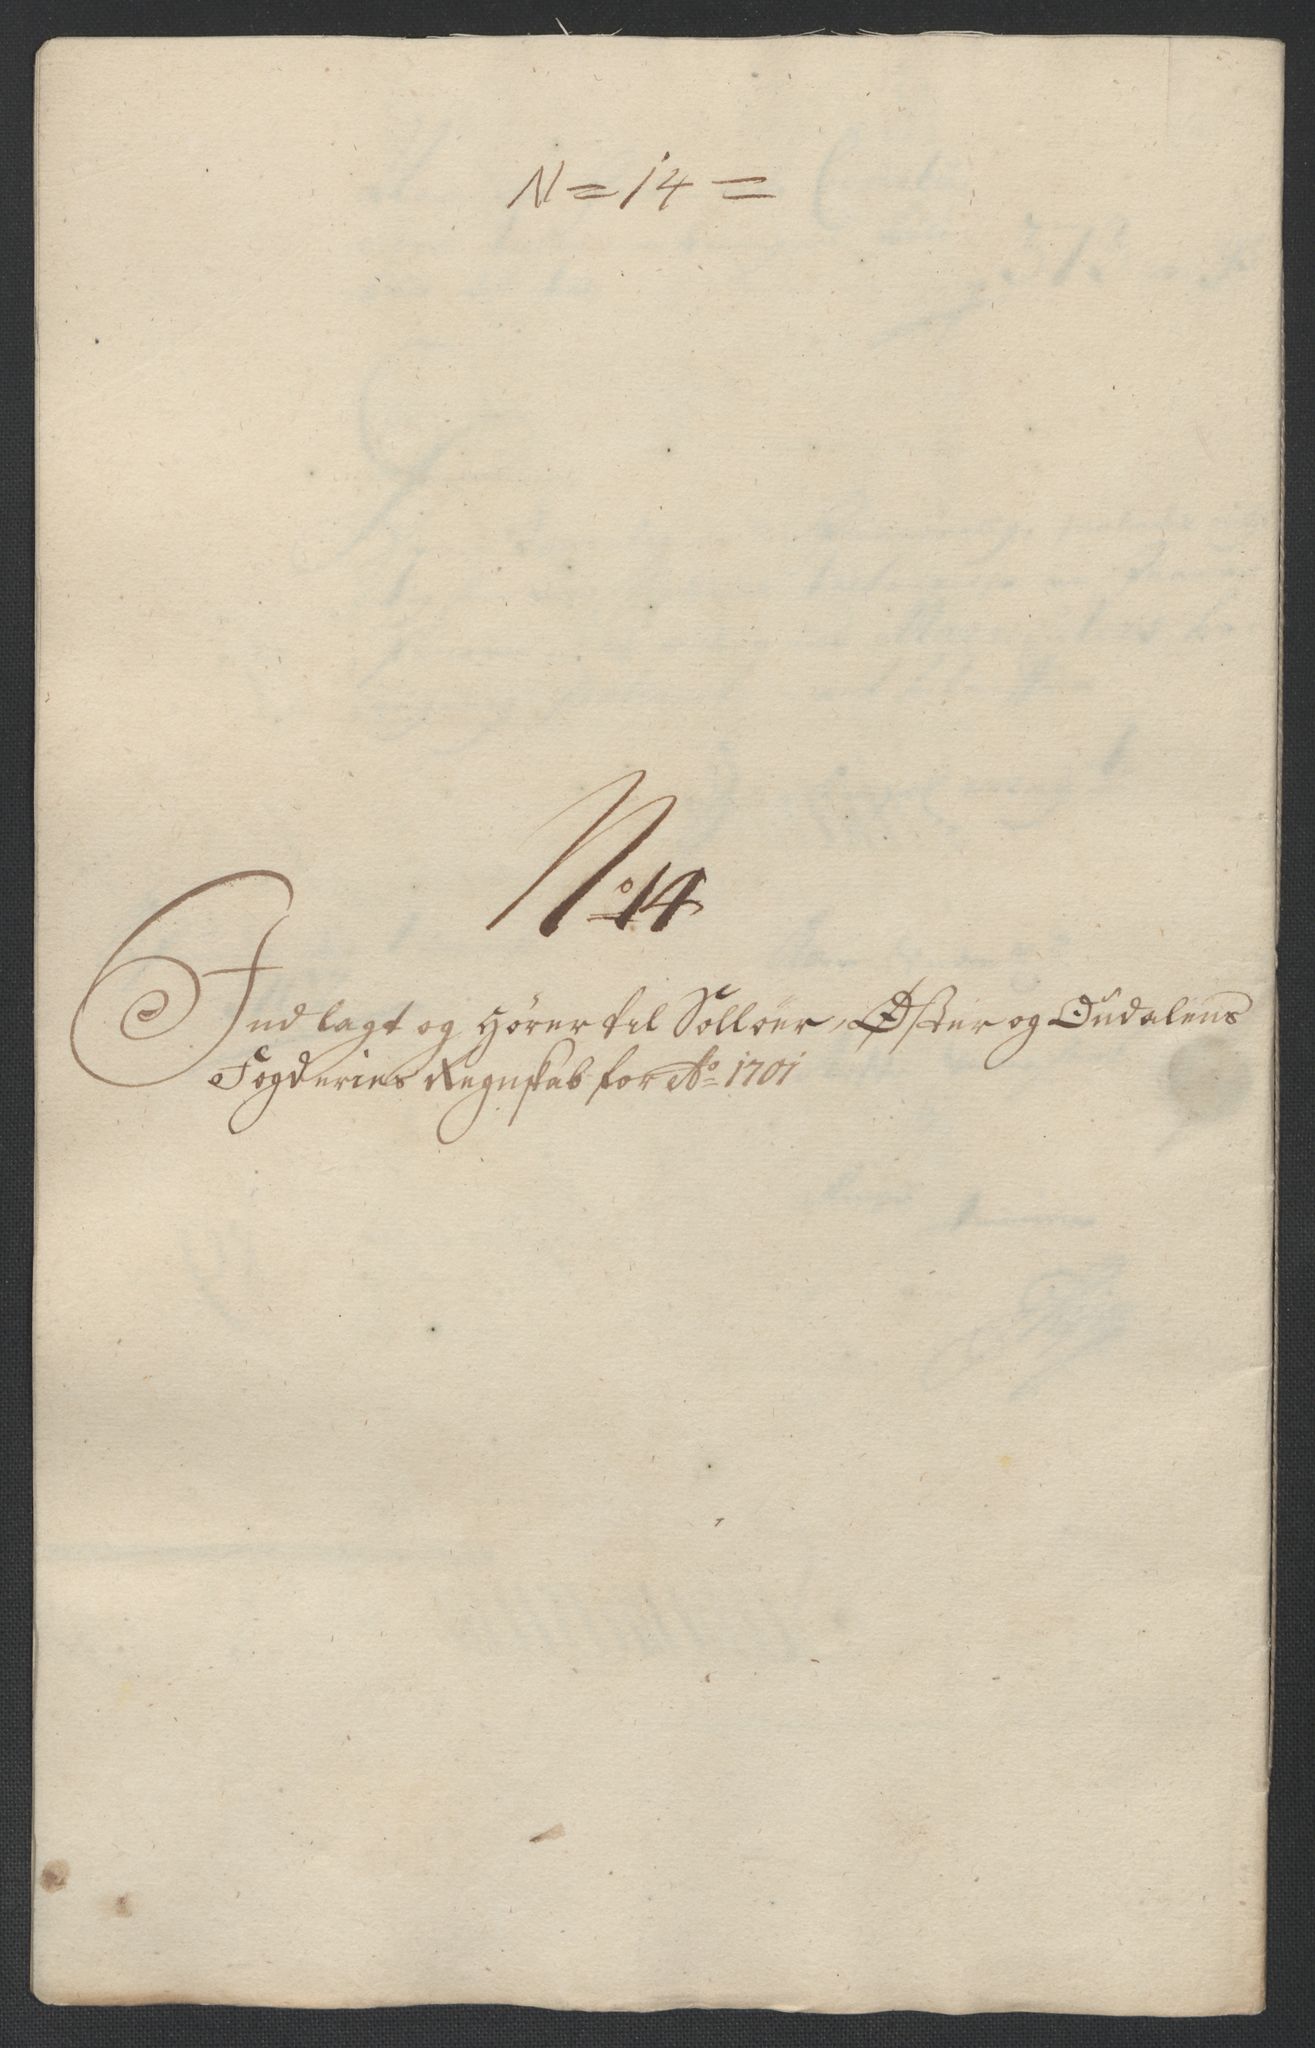 N = 14 =
No 14
Indlagt og hörer til Solløer, Øster og Oudalens
Fogderies Regnskab for Ao 1701